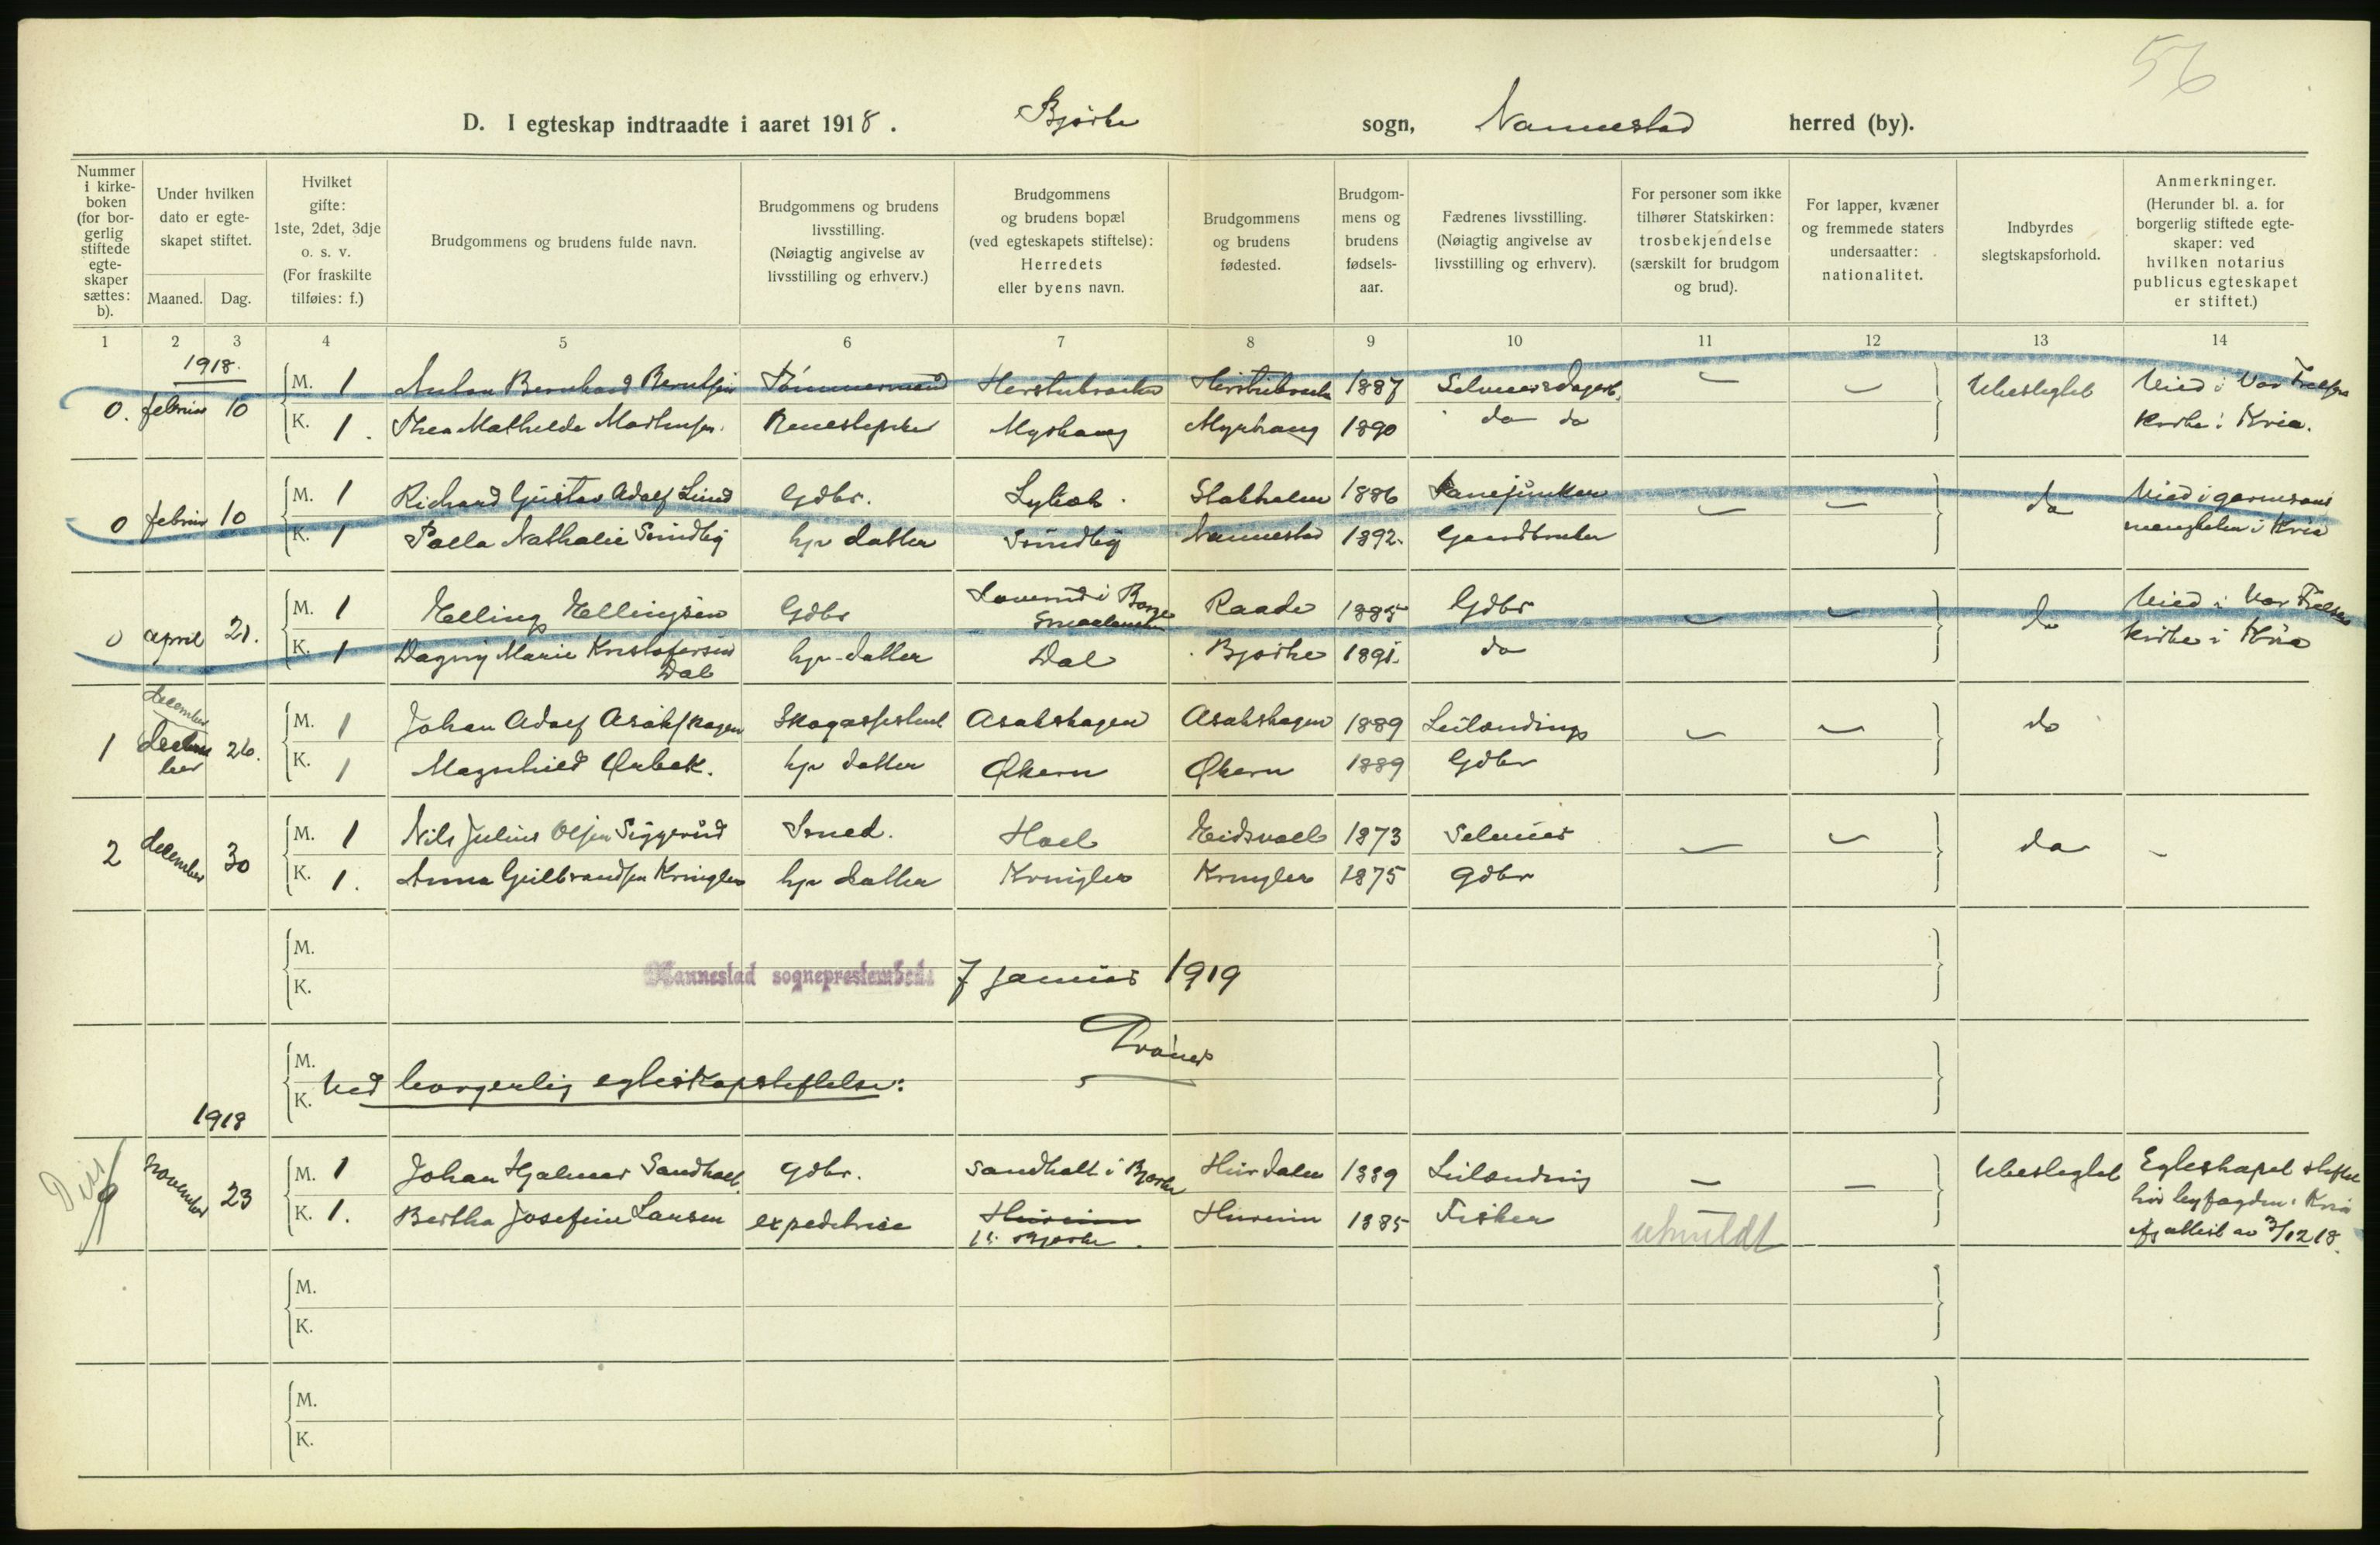 56
D. I egteskap indtraadte i aaret 1918. Bjørke sogn, Nannestad herred (by).
Nummer i kirkeboken (for borgerlig stiftede egteskaper sættes: b).
Under hvilken dato er egteskapet stiftet.
Maaned. Dag.
Hvilket gifte: 1ste, 2det, 3dje o. s. v. (For fraskilte tilføies: f.)
Brudgommens og brudens fulde navn.
Brudgommens og brudens livsstilling. (Nøiagtig angivelse av livsstilling og erhverv.)
Brudgommens og brudens bopæl (ved egteskapets stiftelse): Herredets eller byens navn.
Brudgommens og brudens fødested.
Brudgommens og brudens fødselsaar.
Fædrenes livsstilling. (Nøiagtig angivelse av livsstilling og erhverv).
For personer som ikke tilhører Statskirken: trosbekjendelse (særskilt for brudgom og brud).
For lapper, kvæner og fremmede staters undersaatter: nationalitet.
Indbyrdes slegtskapsforhold.
Anmerkninger. (Herunder bl. a. for borgerlig stiftede egteskaper: ved hvilken notarius publicus egteskapet er stiftet.)
1 2 3 4 5 6 7 8 9 10 11 12 13 14
1918.
0. februar 10 M. 1 Anton Bernhard Berntsen Tømmermand 1887 Ubeslegtet Viet i Vor Frelsers
K. 1. Thea Mathilde Mathisen. Myrhaug 1890 do do kirke i Kria.
0 februar 10 M. 1 Richard Gustav Adolf Lund Gdbr. Stokholm 1886 do Viet i garnisons
K. 1 Nathalie Sundby hjv datter Sundby Nannestad 1892. Gaardbruker menigheten i Kria
0 april 21. M. 1 Elling Ellingsen Gdbr i Borge Smaalenene Raade 1885 Gdbr do Viet i Vor Frelsers
K. 1 Dagny Marie Kristofersen Dal hjv. datter Dal Bjørke 1891. do kirke i Kria
december
1 26. M. 1 Johan Adolf Asakskagen Skogassistent Asakskagen Asakskagen 1889 Leilænding do
K. 1 Magnhild Ørbek. hjv datter Økern Økern 1889 Gdbr
2 december 30 M. 1 Nils Julius Olsen Siggerud Smed. Hoel Eidsvoll 1873 do
K. 1. Anna Gulbrandsen Kringler hjv datter Kringler Kringler 1875 Gdbr
M.
K. Nannestad sogneprestembede 7 januar 1919
M.
K. Ved borgerlig egteskapsstiftelse:
1918
november 23 M. 1 Johan Hjalmar Sandholt. Gdbr. Sandholt i Bjørke Hurdalen 1889 Leilænding Ubeslegtet Egteskapet stiftet
K. 1. Bertha Josefine Larsen expeditrice Hurum Bjørke. Hurum 1885 Fisker uhuldt hos byfogden i Kria
attest av 3/12 18.
M.
K.
M.
K.